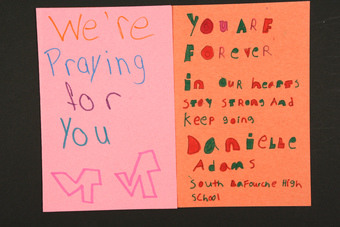 We're
Praying
for
You
VT VT
You ARE
Forever
in our hearts
stay strong And
Keep going
Danielle
Adams
South LaFourche High
School